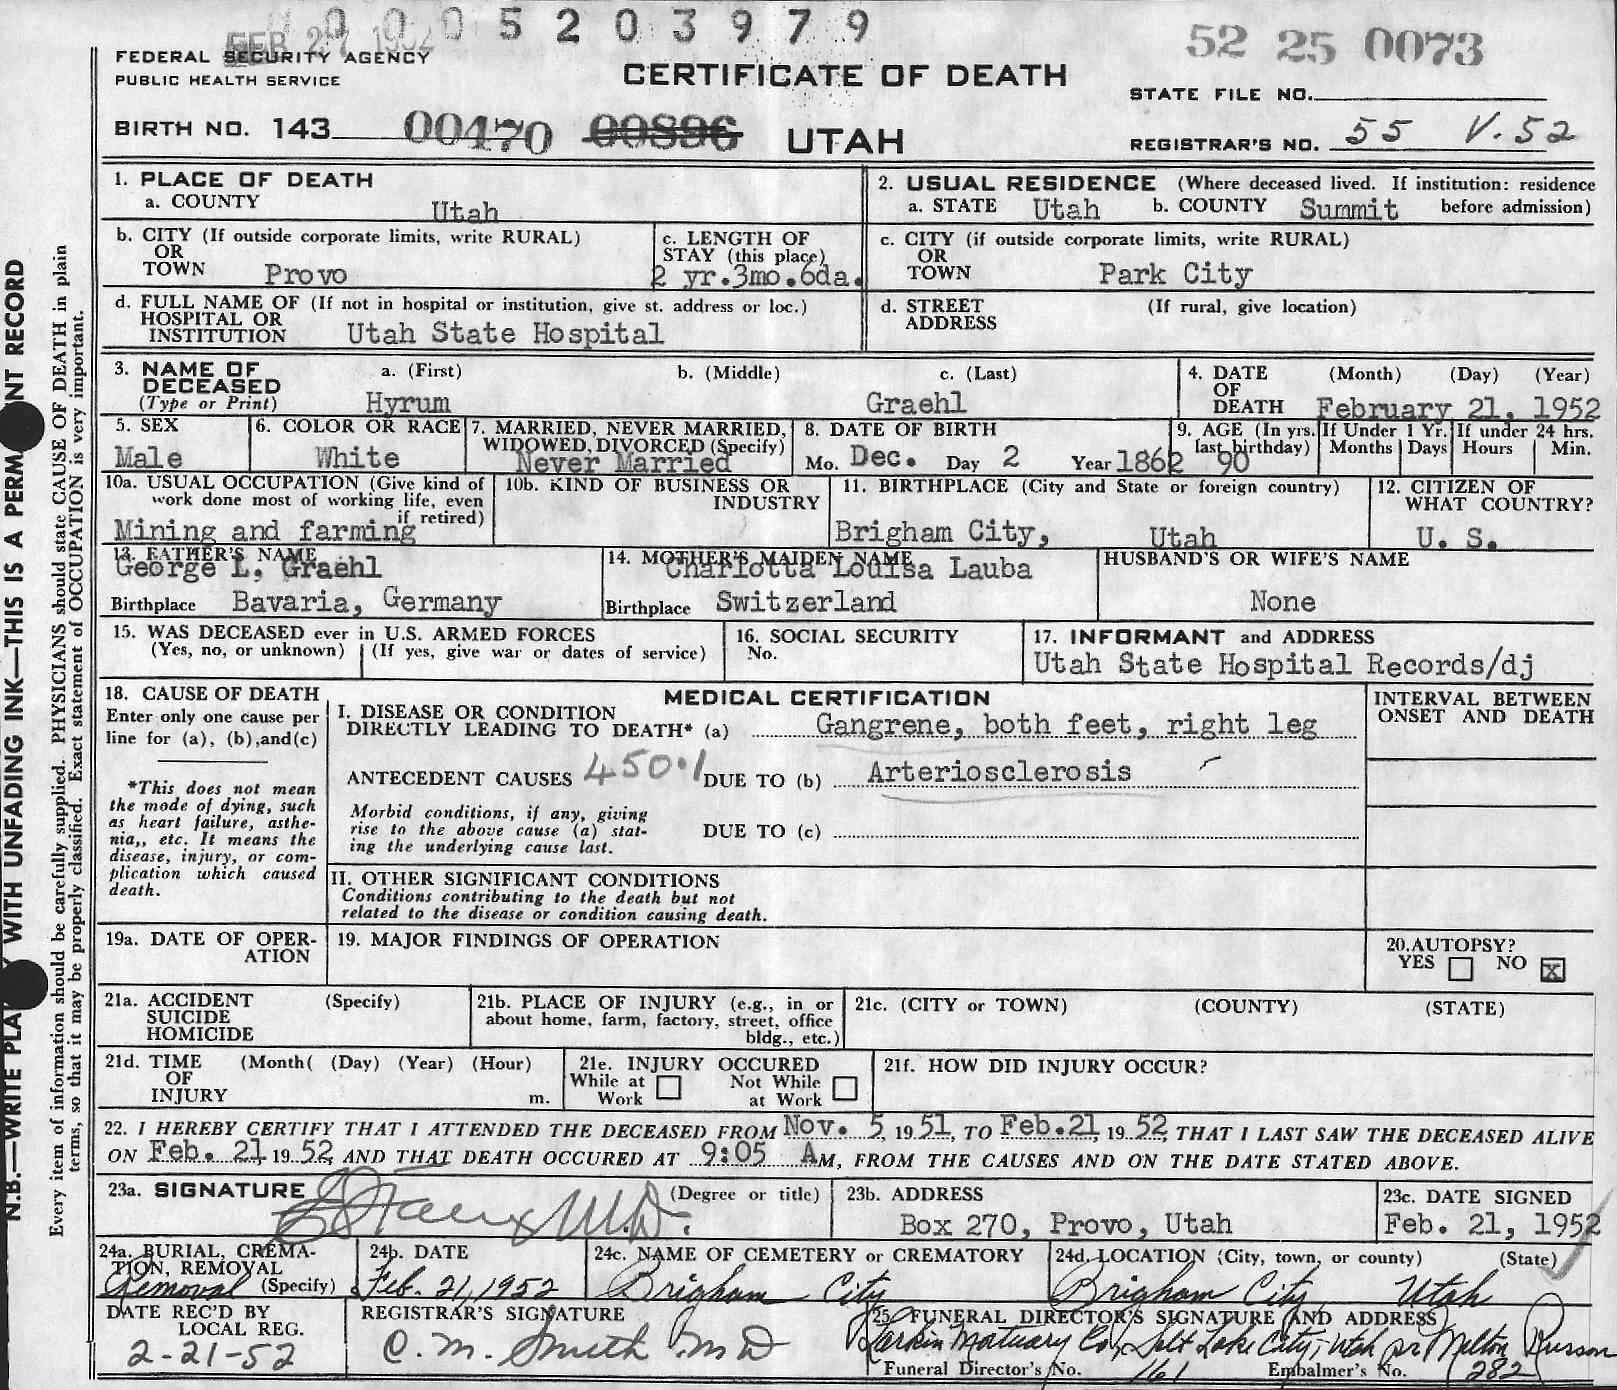 0005203979
FEB 27 1952
52 25 0073
FEDERAL SECURITY AGENCY
PUBLIC HEALTH SERVICE
CERTIFICATE OF DEATH
STATE FILE NO.
BIRTH NO. 143 00470 00896 UTAH
REGISTRAR'S NO. 55 V. 52
1. PLACE OF DEATH
a. COUNTY Utah
2. USUAL RESIDENCE (Where deceased lived. If institution: residence
a. STATE Utah b. COUNTY Summit before admission)
b. CITY (If outside corporate limits, write RURAL)
OR
TOWN Provo
c. LENGTH OF
STAY (this place)
2 yr.3mo.6da.
c. CITY (if outside corporate limits, write RURAL)
OR
TOWN Park City
d. FULL NAME OF (If not in hospital or institution, give st. address or loc.)
HOSPITAL OR
INSTITUTION Utah State Hospital
d. STREET (If rural, give location)
ADDRESS
3. NAME OF a. (First) b. (Middle) c. (Last)
DECEASED
(Type or Print) Hyrum Graehl
4. DATE (Month) (Day) (Year)
OF
DEATH February 21, 1952
5. SEX
Male
6. COLOR OR RACE
White
7. MARRIED, NEVER MARRIED,
WIDOWED, DIVORCED (Specify)
Never Married
8. DATE OF BIRTH
Mo. Dec. Day 2 Year 1862
9. AGE (In yrs.
last birthday)
90
If Under 1 Yr.
Months Days
If under 24 hrs.
Hours Min.
10a. USUAL OCCUPATION (Give kind of
work done most of working life, even
if retired)
Mining and farming
10b. KIND OF BUSINESS OR
INDUSTRY
11. BIRTHPLACE (City and State or foreign country)
Brigham City, Utah
12. CITIZEN OF
WHAT COUNTRY?
U. S.
13. FATHER'S NAME
George L. Graehl
Birthplace Bavaria, Germany
14. MOTHER'S MAIDEN NAME
Charlotta Louisa Lauba
Birthplace Switzerland
HUSBAND'S OR WIFE'S NAME
None
15. WAS DECEASED ever in U.S. ARMED FORCES
(Yes, no, or unknown) (If yes, give war or dates of service)
16. SOCIAL SECURITY
No.
17. INFORMANT and ADDRESS
Utah State Hospital Records/dj
18. CAUSE OF DEATH
Enter only one cause per
line for (a), (b),and(c)
*This does not mean
the mode of dying, such
as heart failure, asthe-
nia,, etc. It means the
disease, injury, or com-
plication which caused
death.
MEDICAL CERTIFICATION
I. DISEASE OR CONDITION
DIRECTLY LEADING TO DEATH* (a) Gangrene, both feet, right leg
ANTECEDENT CAUSES 450.1 DUE TO (b) Arteriosclerosis
Morbid conditions, if any, giving
rise to the above cause (a) stat-
ing the underlying cause last.
DUE TO (c)
INTERVAL BETWEEN
ONSET AND DEATH
II. OTHER SIGNIFICANT CONDITIONS
Conditions contributing to the death but not
related to the disease or condition causing death.
19a. DATE OF OPER-
ATION
19. MAJOR FINDINGS OF OPERATION
20.AUTOPSY?
YES NO X
21a. ACCIDENT (Specify)
SUICIDE
HOMICIDE
21b. PLACE OF INJURY (e.g., in or
about home, farm, factory, street, office
bldg., etc.)
21c. (CITY or TOWN) (COUNTY) (STATE)
21d. TIME (Month( (Day) (Year) (Hour)
OF
INJURY m.
21e. INJURY OCCURED
While at Work Not While at Work
21f. HOW DID INJURY OCCUR?
22. I HEREBY CERTIFY THAT I ATTENDED THE DECEASED FROM Nov. 5, 1951, TO Feb.21, 1952, THAT I LAST SAW THE DECEASED ALIVE
ON Feb. 21 1952, AND THAT DEATH OCCURED AT 9:05 AM, FROM THE CAUSES AND ON THE DATE STATED ABOVE.
23a. SIGNATURE (Degree or title)
M.D.
23b. ADDRESS
Box 270, Provo, Utah
23c. DATE SIGNED
Feb. 21, 1952
24a. BURIAL, CREMA-
TION, REMOVAL
Removal (Specify)
24b. DATE
Feb. 21, 1952
24c. NAME OF CEMETERY or CREMATORY
Brigham City
24d. LOCATION (City, town, or county) (State)
Brigham City, Utah
DATE REC'D BY
LOCAL REG.
2-21-52
REGISTRAR'S SIGNATURE
C. M. Smith M D
25. FUNERAL DIRECTOR'S SIGNATURE AND ADDRESS
Larkin Mortuary Co, Salt Lake City, Utah pr Melton Russon
Funeral Director's No. 161 Embalmer's No. 282
N.B.—WRITE PLA WITH UNFADING INK—THIS IS A PERM NT RECORD
Every item of information should be carefully supplied. PHYSICIANS should state CAUSE OF DEATH in plain
terms, so that it may be properly classified. Exact statement of OCCUPATION is very important.